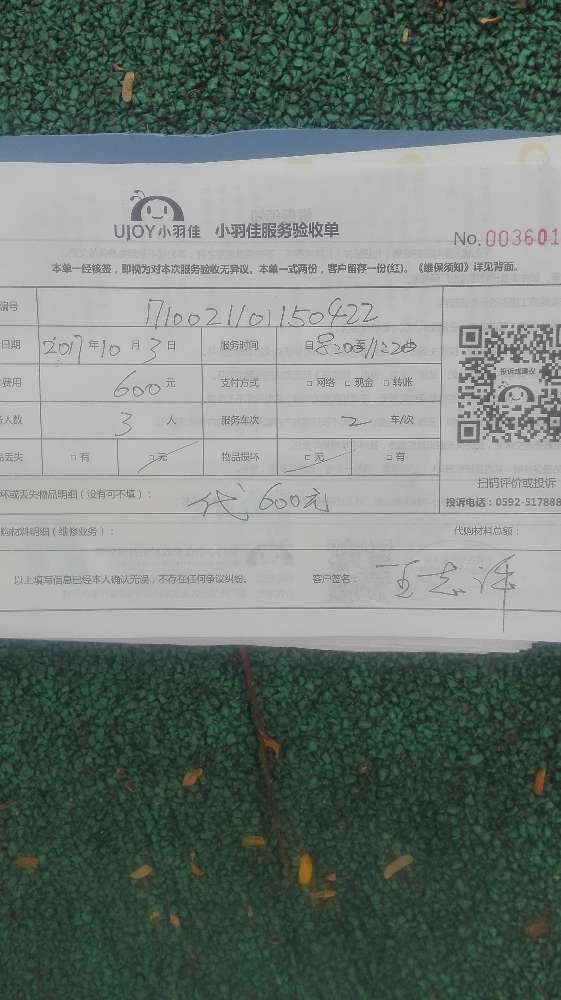 UJOY小羽佳 小羽佳服务验收单
No.003601
本单一经核签，即视为对本次服务验收无异议。本单一式两份，客户留存一份(红)。《维保须知》详见背面。
编号 710021101150422
日期 2017年10月3日 服务时间 自8:20至11:20
费用 600元 支付方式 □ 网络 □ 现金 □ 转账
人数 3人 服务车次 2车/次
丢失 □ 有 □ 无 物品损坏 □ 无 □ 有
投诉或建议
扫码评价或投诉
投诉电话：0592-517888
坏或丢失物品明细（没有可不填）： 代600元
购材料明细（维修业务）： 代购材料总额：
以上填写信息已经本人确认无误，不存在任何争议纠纷。 客户签名： 王志